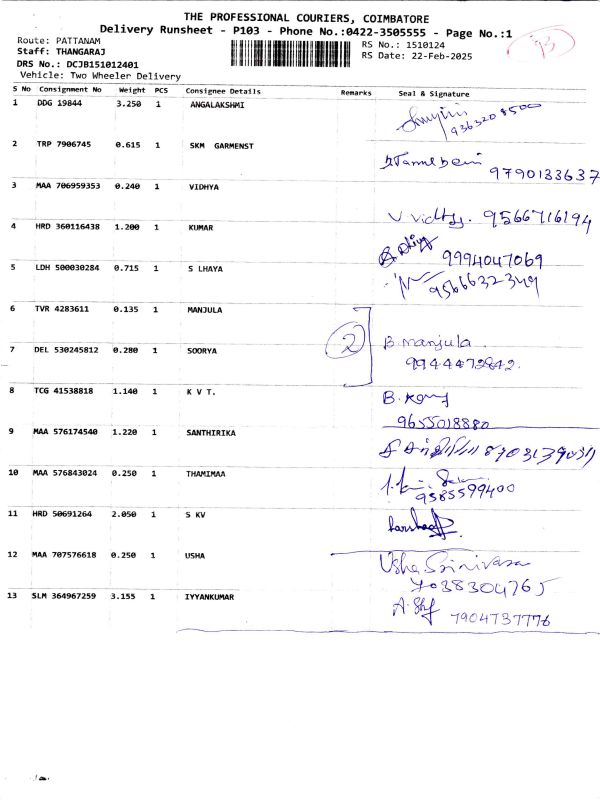 THE PROFESSIONAL COURIERS, COIMBATORE
Delivery Runsheet - P103 - Phone No.:0422-3505555 - Page No.:1
93
Route: PATTANAM
RS No.: 1510124
Staff: THANGARAJ
RS Date: 22-Feb-2025
DRS No.: DCJB151012401
Vehicle: Two Wheeler Delivery
S No Consignment No Weight PCS Consignee Details Remarks Seal & Signature
1 DDG 19844 3.250 1 ANGALAKSHMI
9363208500
2 TRP 7906745 0.615 1 SKM GARMENST
9790133637
3 MAA 706959353 0.240 1 VIDHYA
V Vidhya. 9566716194
4 HRD 360116438 1.200 1 KUMAR
9994047069
5 LDH 500030284 0.715 1 S LHAYA
9566632349
6 TVR 4283611 0.135 1 MANJULA
2 B.Manjula.
7 DEL 530245812 0.280 1 SOORYA
9944472842.
8 TCG 41538818 1.140 1 K V T.
9655018880
9 MAA 576174540 1.220 1 SANTHIRIKA
10 MAA 576843024 0.250 1 THAMIMAA
9585599400
11 HRD 50691264 2.050 1 S KV
12 MAA 707576618 0.250 1 USHA
Usha Srinivasa
7038304765
13 SLM 364967259 3.155 1 IYYANKUMAR
7904737776